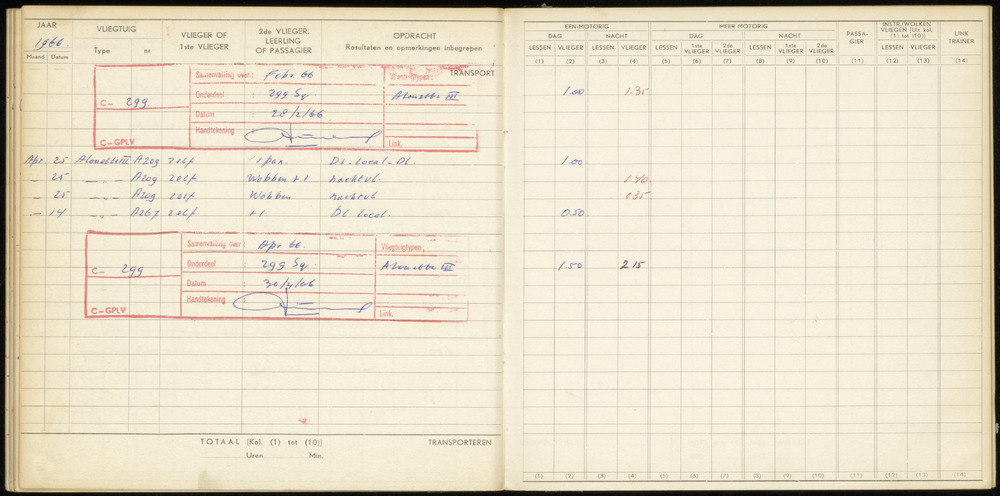 JAAR VLIEGTUIG VLIEGER OF 1ste VLIEGER 2de VLIEGER, LEERLING OF PASSAGIER OPDRACHT
1966. Type nr Resultaten en opmerkingen inbegrepen
Maand Datum
EEN-MOTORIG MEER MOTORIG PASSA-GIER INSTR./WOLKEN VLIEGEN [Uit kol. (1) tot (10)] LINK TRAINER
DAG NACHT DAG NACHT
LESSEN VLIEGER LESSEN VLIEGER LESSEN 1ste VLIEGER 2de VLIEGER LESSEN 1ste VLIEGER 2de VLIEGER LESSEN VLIEGER
(1) (2) (3) (4) (5) (6) (7) (8) (9) (10) (11) (12) (13) (14)
TRANSPORT
Samenvatting over: Febr 66 Vliegtuigtypen:
C- 299 Onderdeel : 299 Sq Alouette III 1.00 1.35
Datum : 28/2/66
Handtekening
C-GPLV Link.
Apr 25 Alouette III A209 zelf 1 pax. DL-Local-DL 1.00
- 25 -"- A209 zelf Wobben +1 nachtvl. 1.40
- 25 -"- A209 zelf Wobben nachtvl 035
- 14 -"- A267 zelf +1 DL Local. 0.50
Samenvatting over: Apr 66. Vliegtuigtypen:
C- 299 Onderdeel : 299 Sq. Alouette III 1.50 2.15
Datum : 30/4/66
Handtekening
C-GPLV Link.
TOTAAL [Kol. (1) tot (10)] TRANSPORTEREN
Uren Min.
(1) (2) (3) (4) (5) (6) (7) (8) (9) (10) (11) (12) (13) (14)